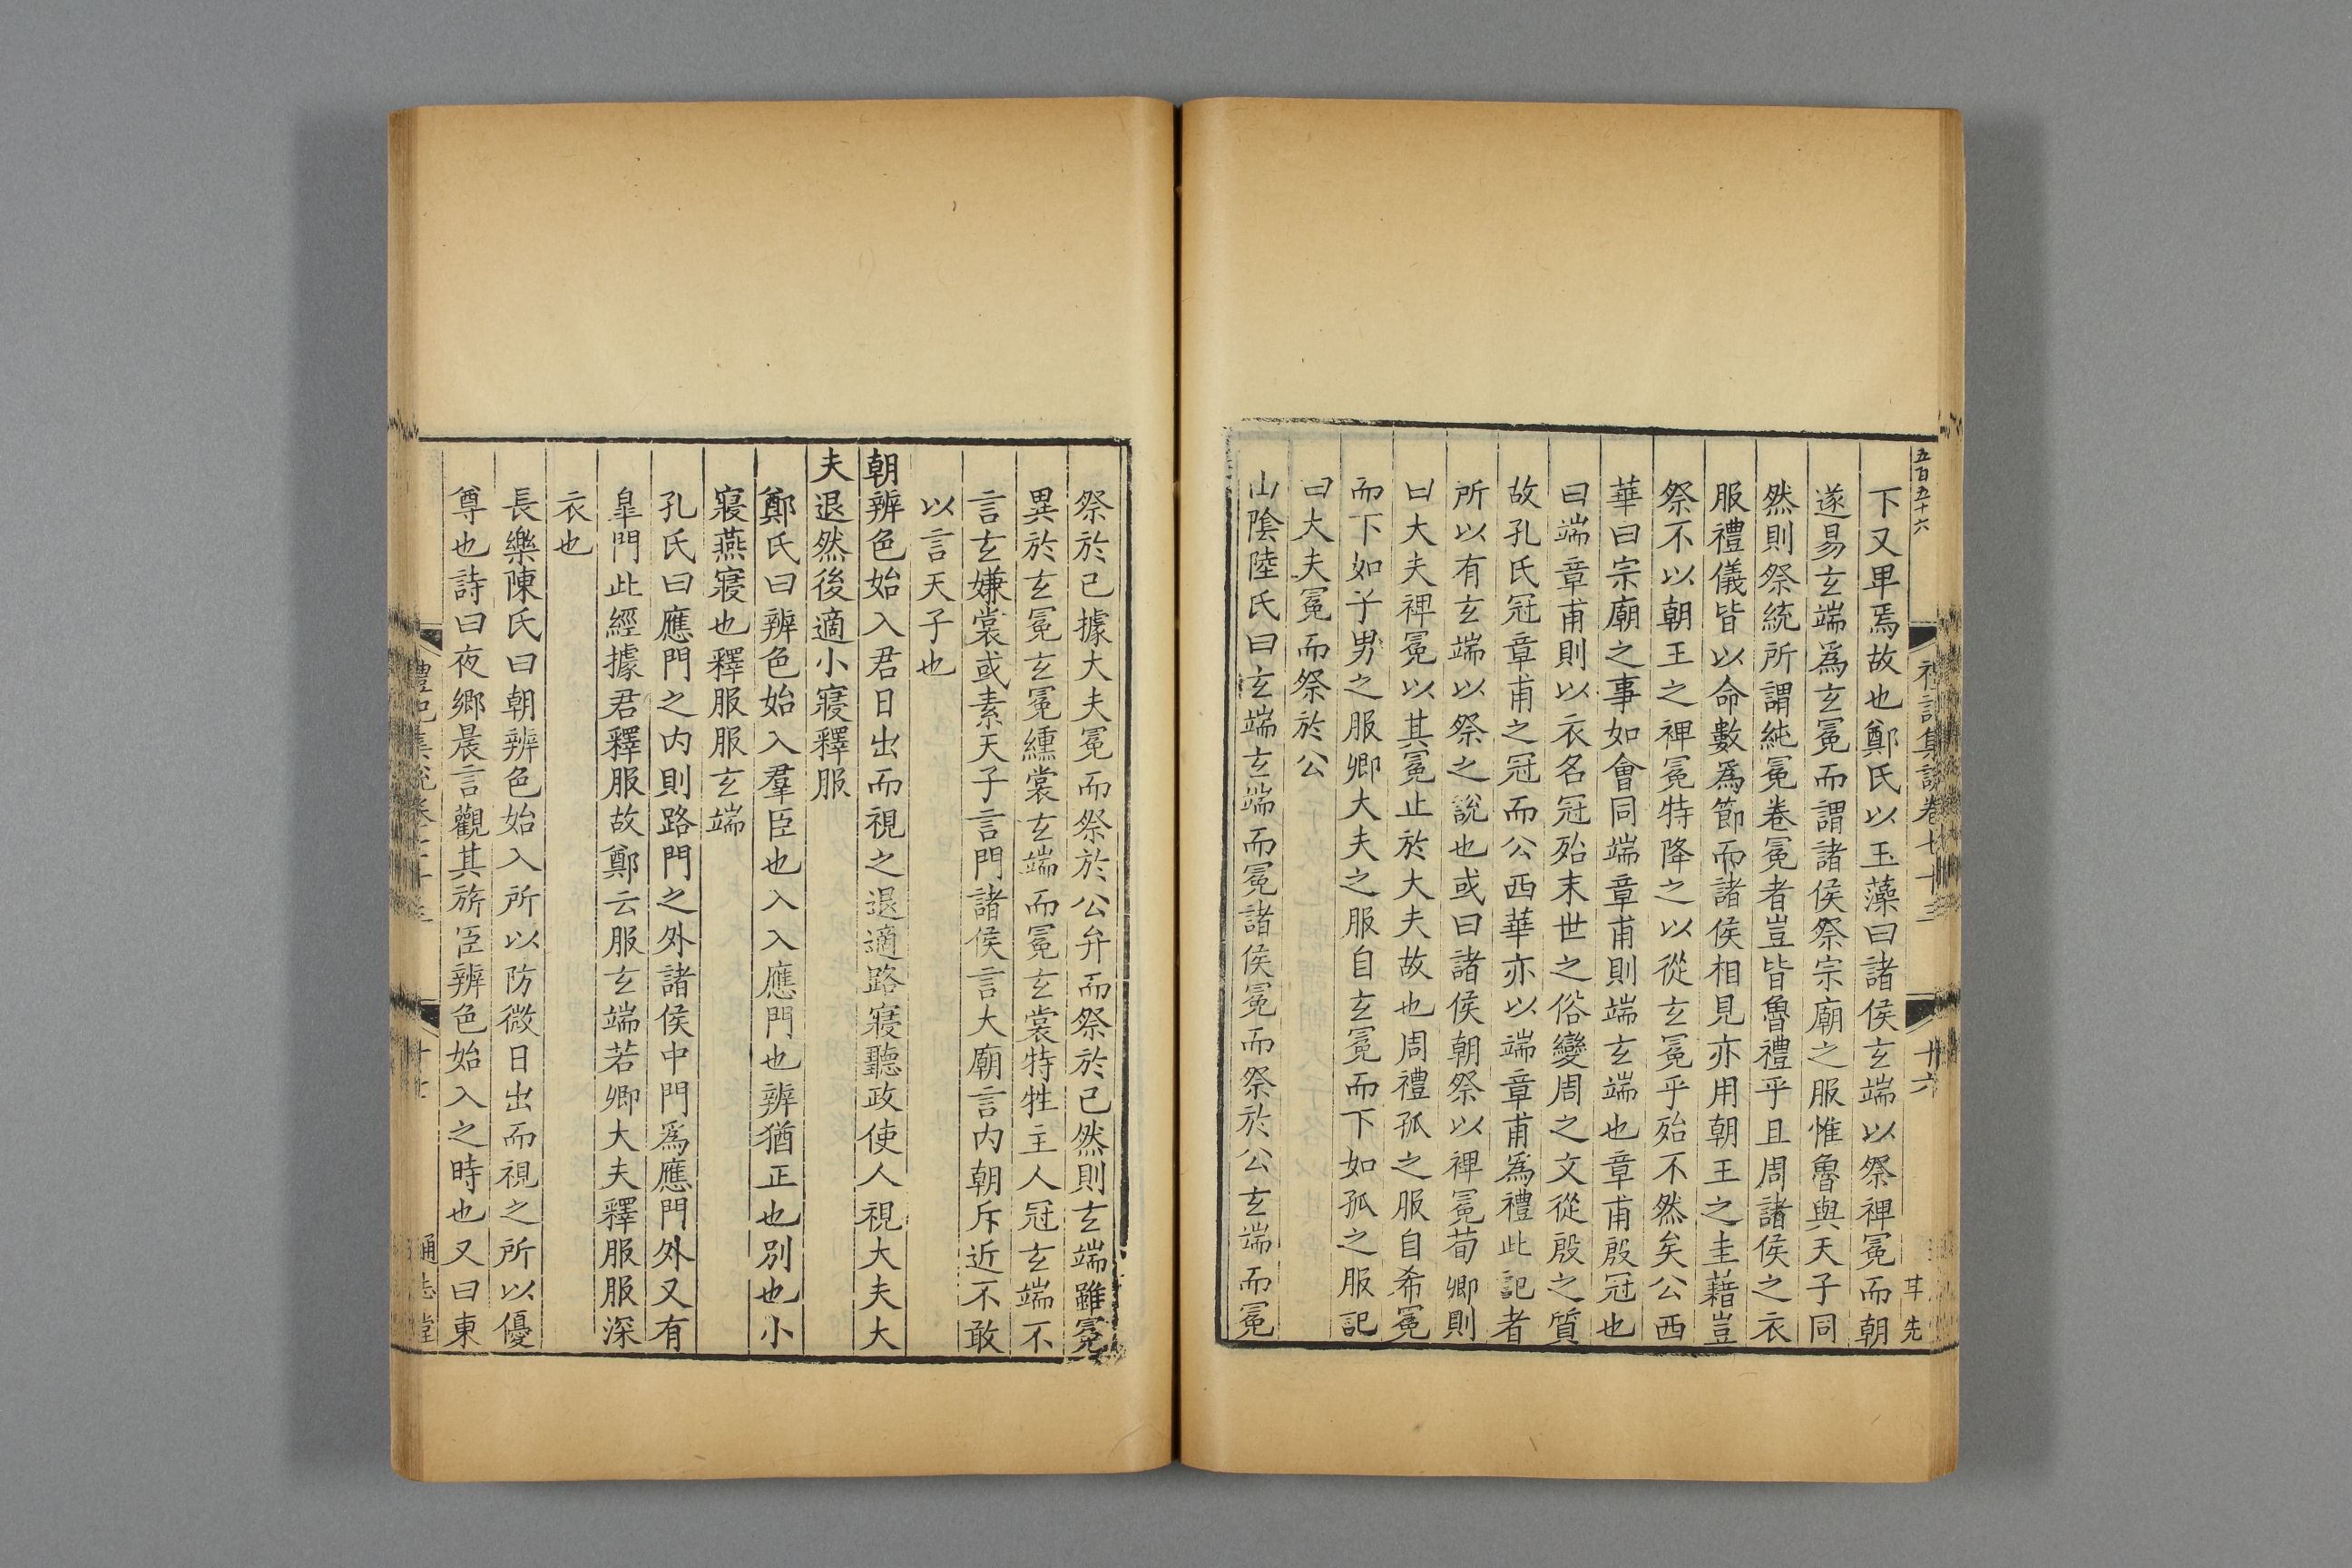 五百五十六
禮記集説卷七十三
十六
甘先
下又卑焉故也鄭氏以玉藻曰諸侯玄端以祭裨冕而朝
遂易玄端爲玄冕而謂諸侯祭宗廟之服惟魯與天子同
然則祭統所謂純冕卷冕者豈皆魯禮乎且周諸侯之衣
服禮儀皆以命數爲節而諸侯相見亦用朝王之圭藉豈
祭不以朝王之裨冕特降之以從玄冕乎殆不然矣公西
華曰宗廟之事如會同端章甫則端玄端也章甫殷冠也
曰端章甫則以衣名冠殆末世之俗變周之文從殷之質
故孔氏冠章甫之冠而公西華亦以端章甫爲禮此記者
所以有玄端以祭之說也或曰諸侯朝祭以裨冕荀卿則
曰大夫裨冕以其冕止於大夫故也周禮孤之服自希冕
而下如子男之服卿大夫之服自玄冕而下如孤之服記
曰大夫冕而祭於公
山陰陸氏曰玄端玄端而冕諸侯冕而祭於公玄端而冕
祭於已據大夫冕而祭於公弁而祭於已然則玄端雖冕
異於玄冕玄冕纁裳玄端而冕玄裳特牲主人冠玄端不
言玄嫌裳或素天子言門諸侯言大廟言内朝斥近不敢
以言天子也
朝辨色始入君日出而視之退適路寢聽政使人視大夫大
夫退然後適小寢釋服
鄭氏曰辨色始入羣臣也入入應門也辨猶正也別也小
寢燕寢也釋服服玄端
孔氏曰應門之内則路門之外諸侯中門爲應門外又有
皐門此經據君釋服故鄭云服玄端若卿大夫釋服服深
衣也
長樂陳氏曰朝辨色始入所以防微日出而視之所以優
尊也詩曰夜鄉晨言觀其旂臣辨色始入之時也又曰東
禮記集說卷七十三
十七
通志堂